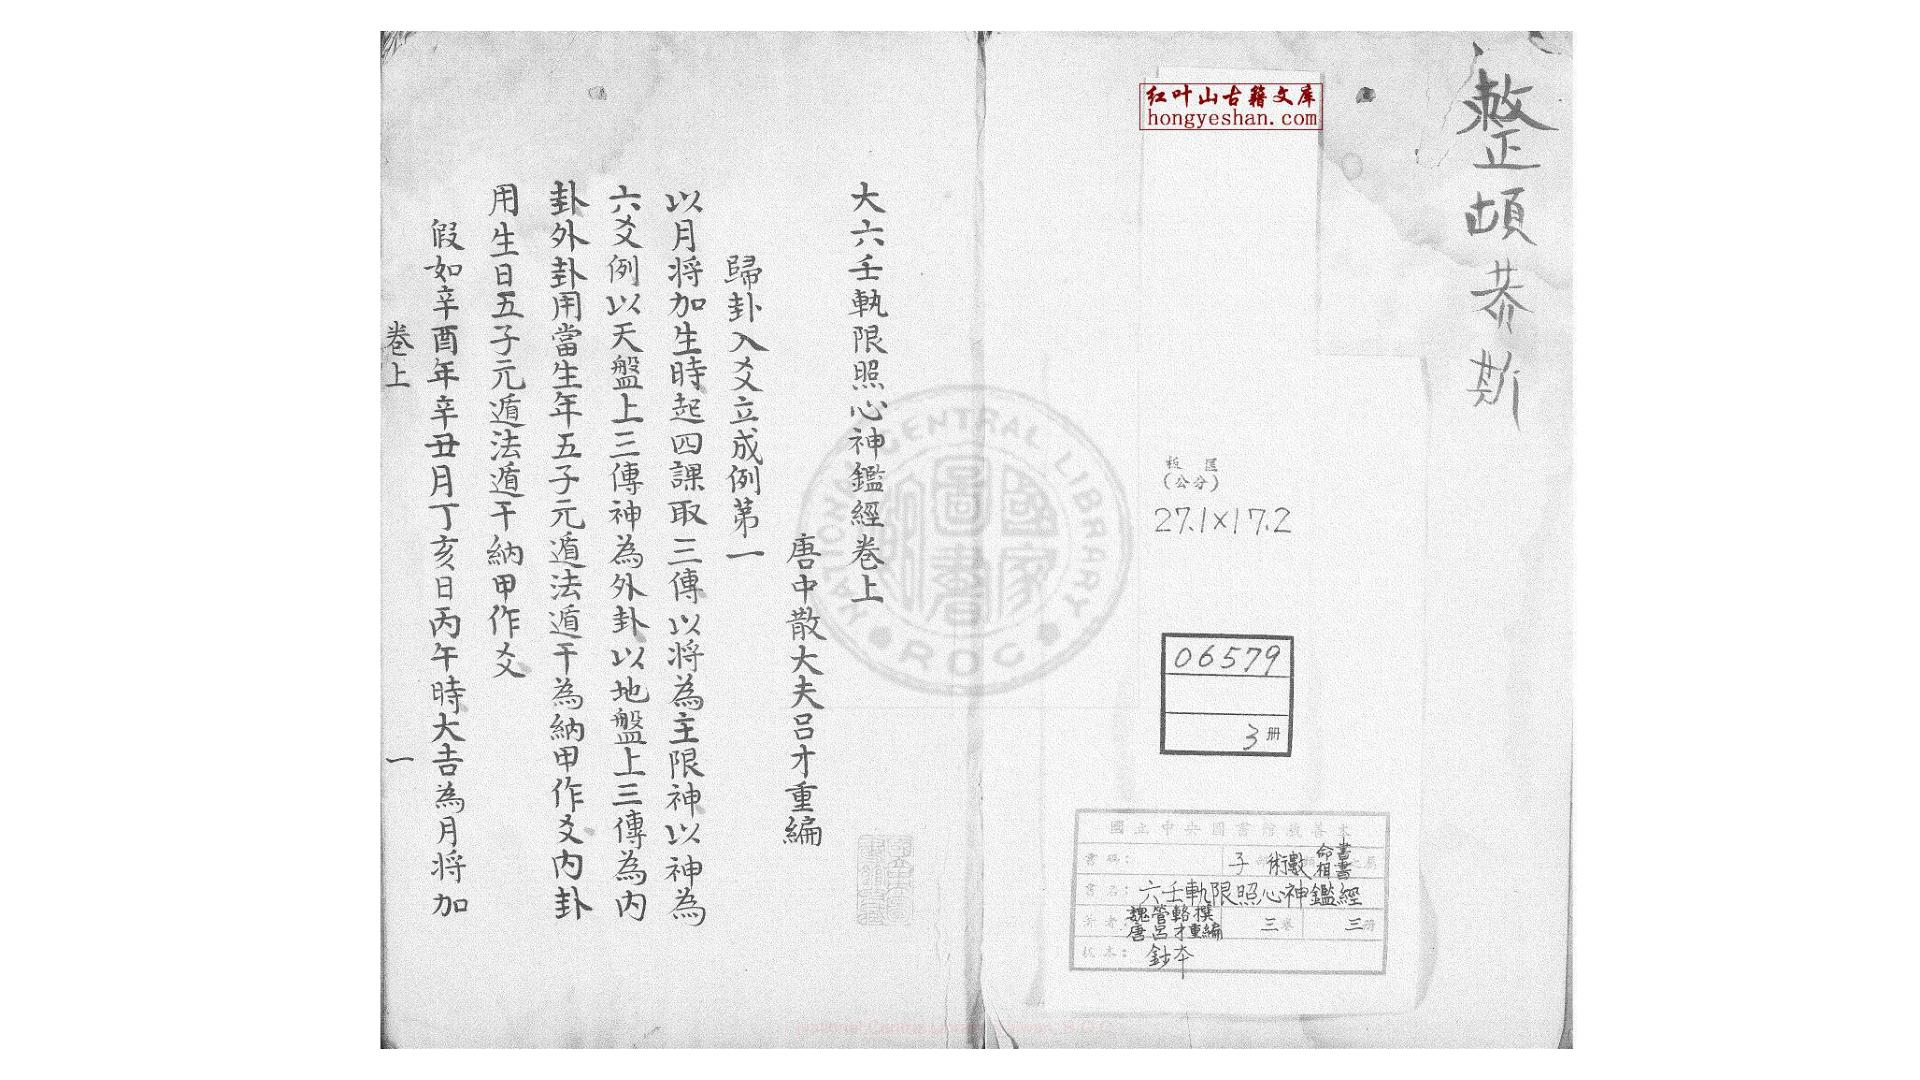 整頓恭斯
红叶山古籍文库
hongyeshan.com
板匡
(公分)
27.1×17.2
06579
3册
國立中央圖書館藏善本
書碼： 子 術數 命書相書
書名：六壬軌限照心神鑑經
著者：魏管輅撰 唐呂才重編 三卷 三冊
板本：鈔本
大六壬軌限照心神鑑經卷上
唐中散大夫呂才重編
歸卦入爻立成例第一
以月將加生時起四課取三傳以將為主限神以神為
六爻例以天盤上三傳神為外卦以地盤上三傳為內
卦外卦用當生年五子元遁法遁干為納甲作爻內卦
用生日五子元遁法遁干納甲作爻
假如辛酉年辛丑月丁亥日丙午時大吉為月將加
卷上
一
NATIONAL CENTRAL LIBRARY
R O C
國家圖書館